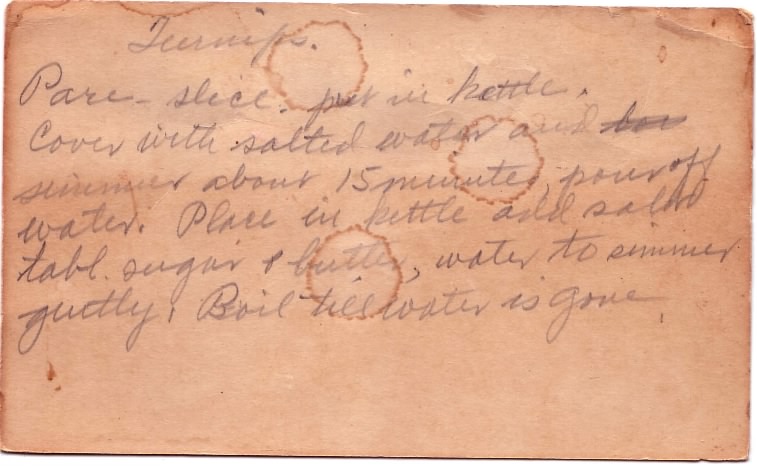 Turnips.
Pare - slice. put in kettle.
Cover with salted water and
simmer about 15 minutes, pour off
water. Place in kettle add salt
tabl. sugar & butter, water to simmer
gently. Boil till water is gone